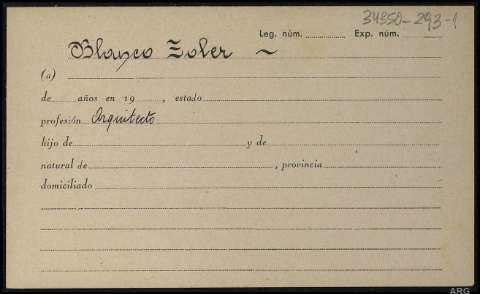 34350-293-1
Leg. núm. Exp. núm.
Blasco Soler ~
(a)
de años en 19 , estado
profesión Arquitecto
hijo de y de
natural de , provincia
domiciliado
ARG